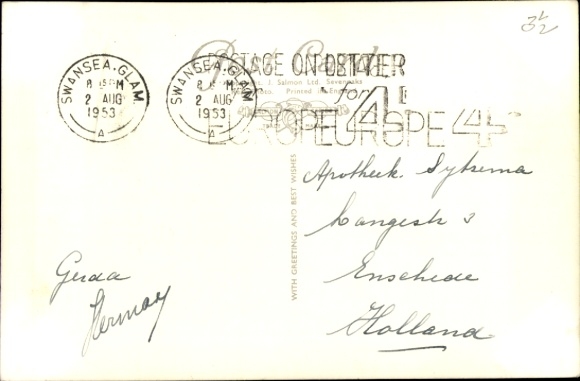 3½
SWANSEA.GLAM.
8 15PM
2 AUG
1953
A
SWANSEA.GLAM
8 15PM
2 AUG
1953
A
Post Card
POSTAGE ON LETTER
for
EUROPE EUROPE 4
J. Salmon Ltd. Sevenoaks
Printed in England
WITH GREETINGS AND BEST WISHES
Apotheek. Sytsema
Langestr 3
Enschede
Holland
Gerda
Herman